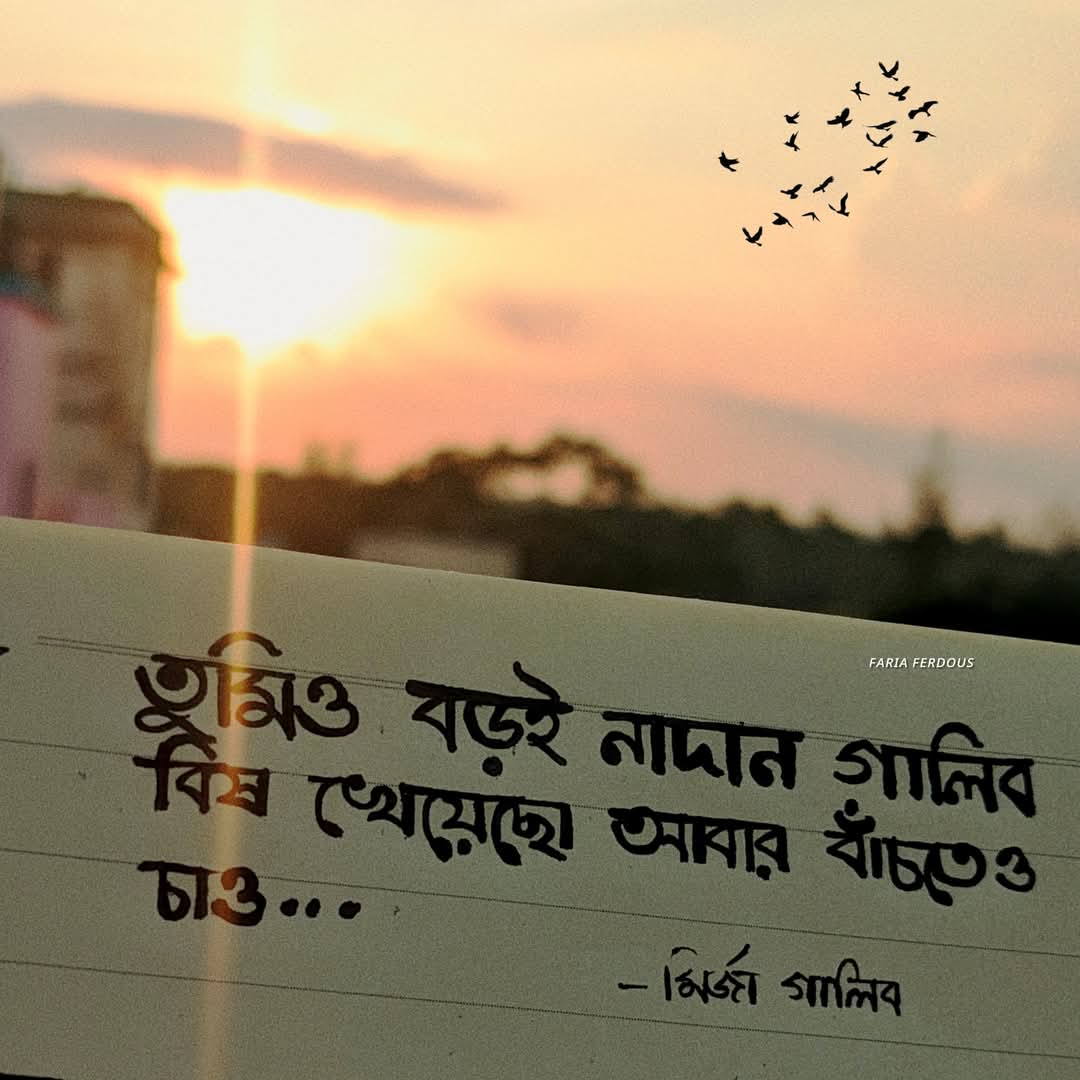 FARIA FERDOUS
তুমিও বড়ই নাদান গালিব
বিষ খেয়েছো আবার বাঁচতেও
চাও...
– মির্জা গালিব